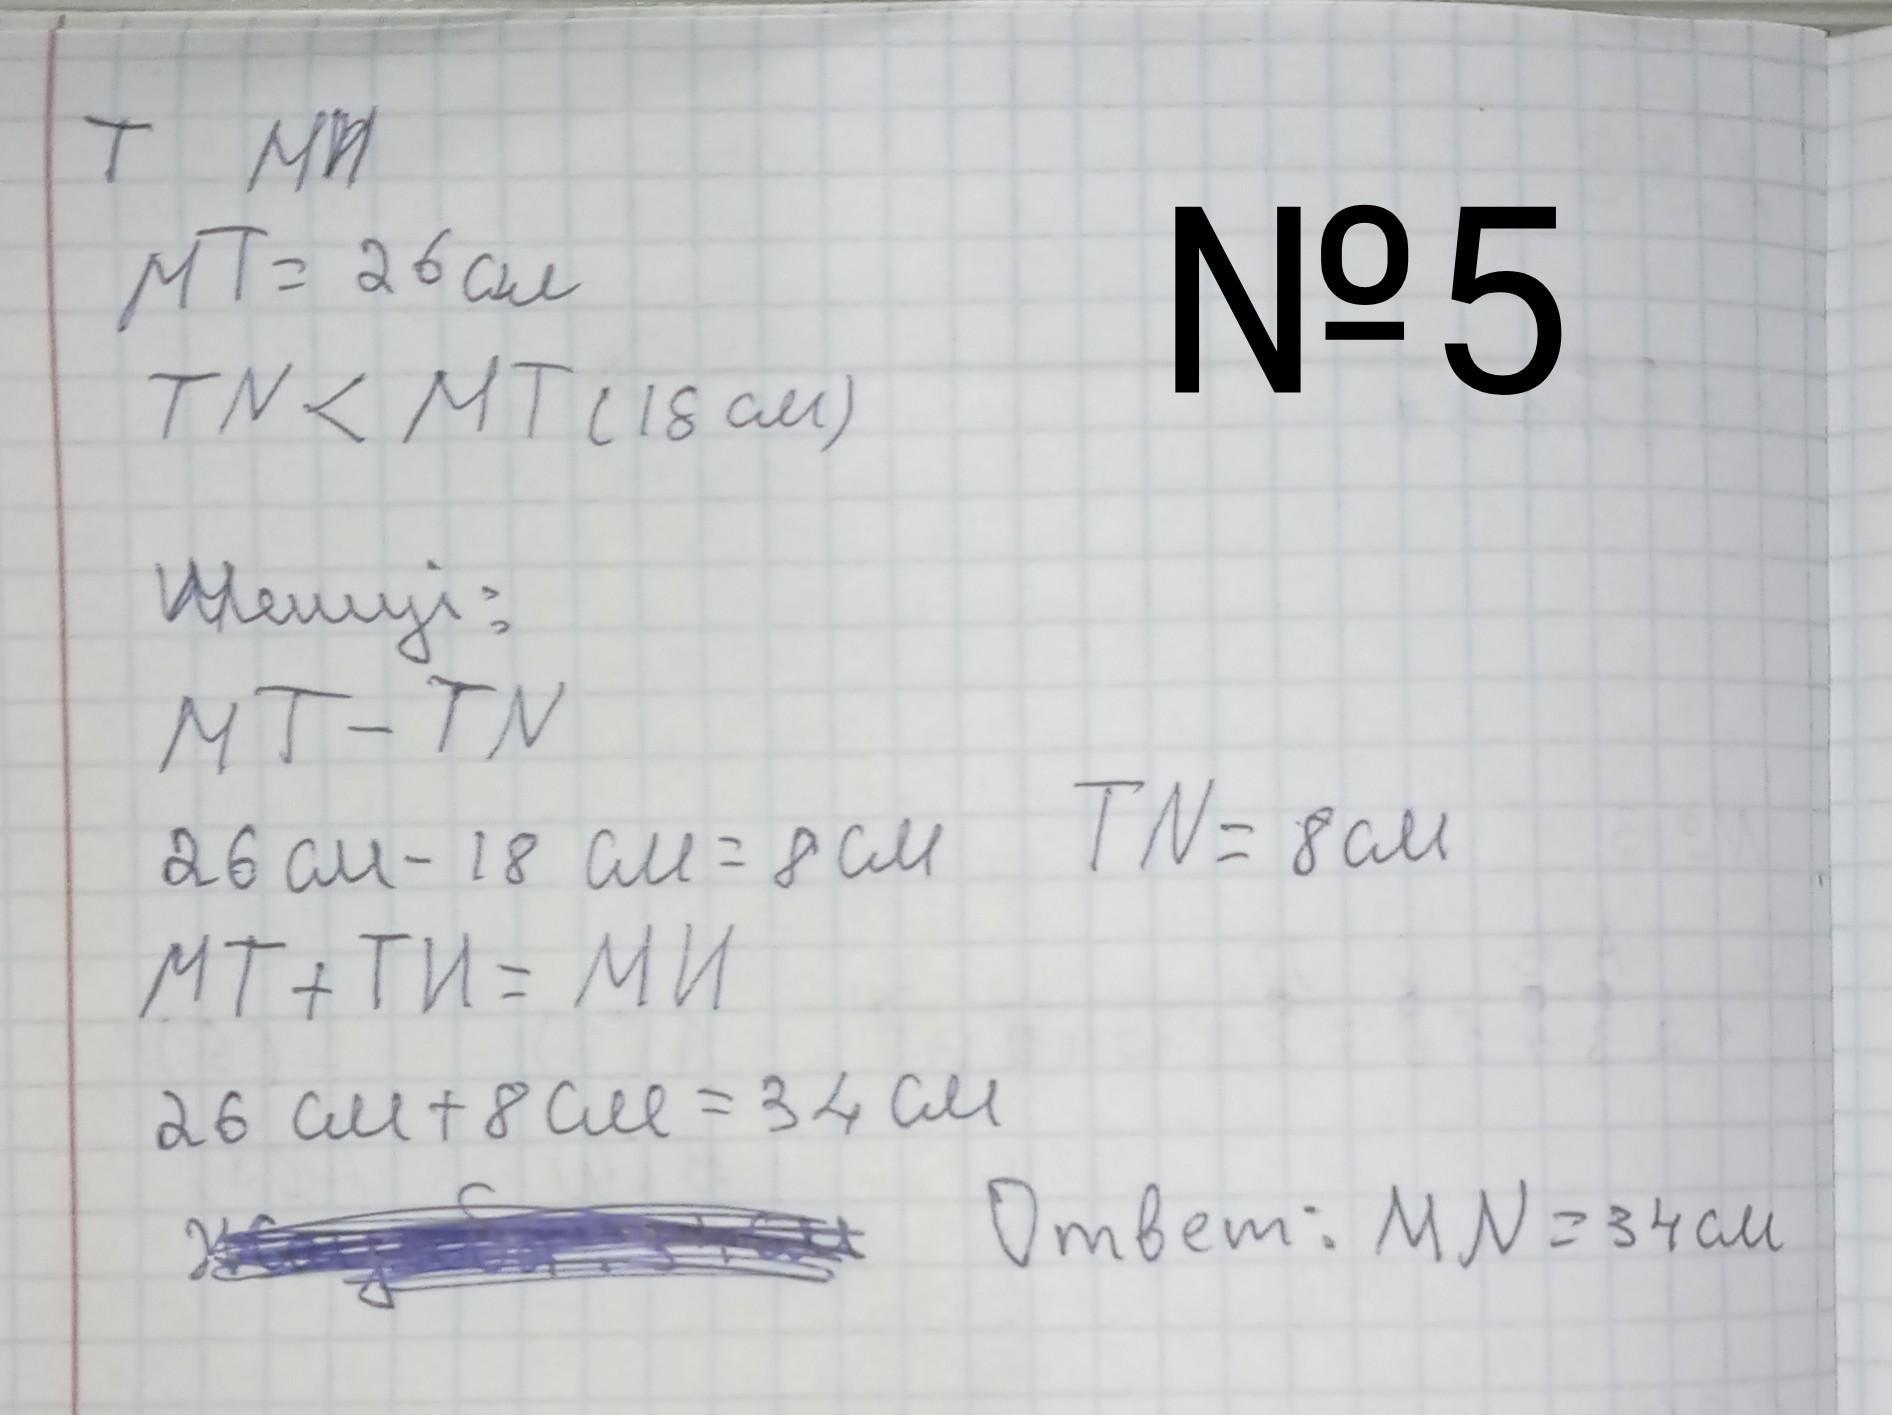 Т МИ
№5
МТ= 26см
TN < MT (18 см)
Шешуі:
MT - TN
26 см - 18 см = 8 см TN = 8 см
МТ + ТИ = МИ
26 см + 8 см = 34 см
Ответ: MN = 34 см